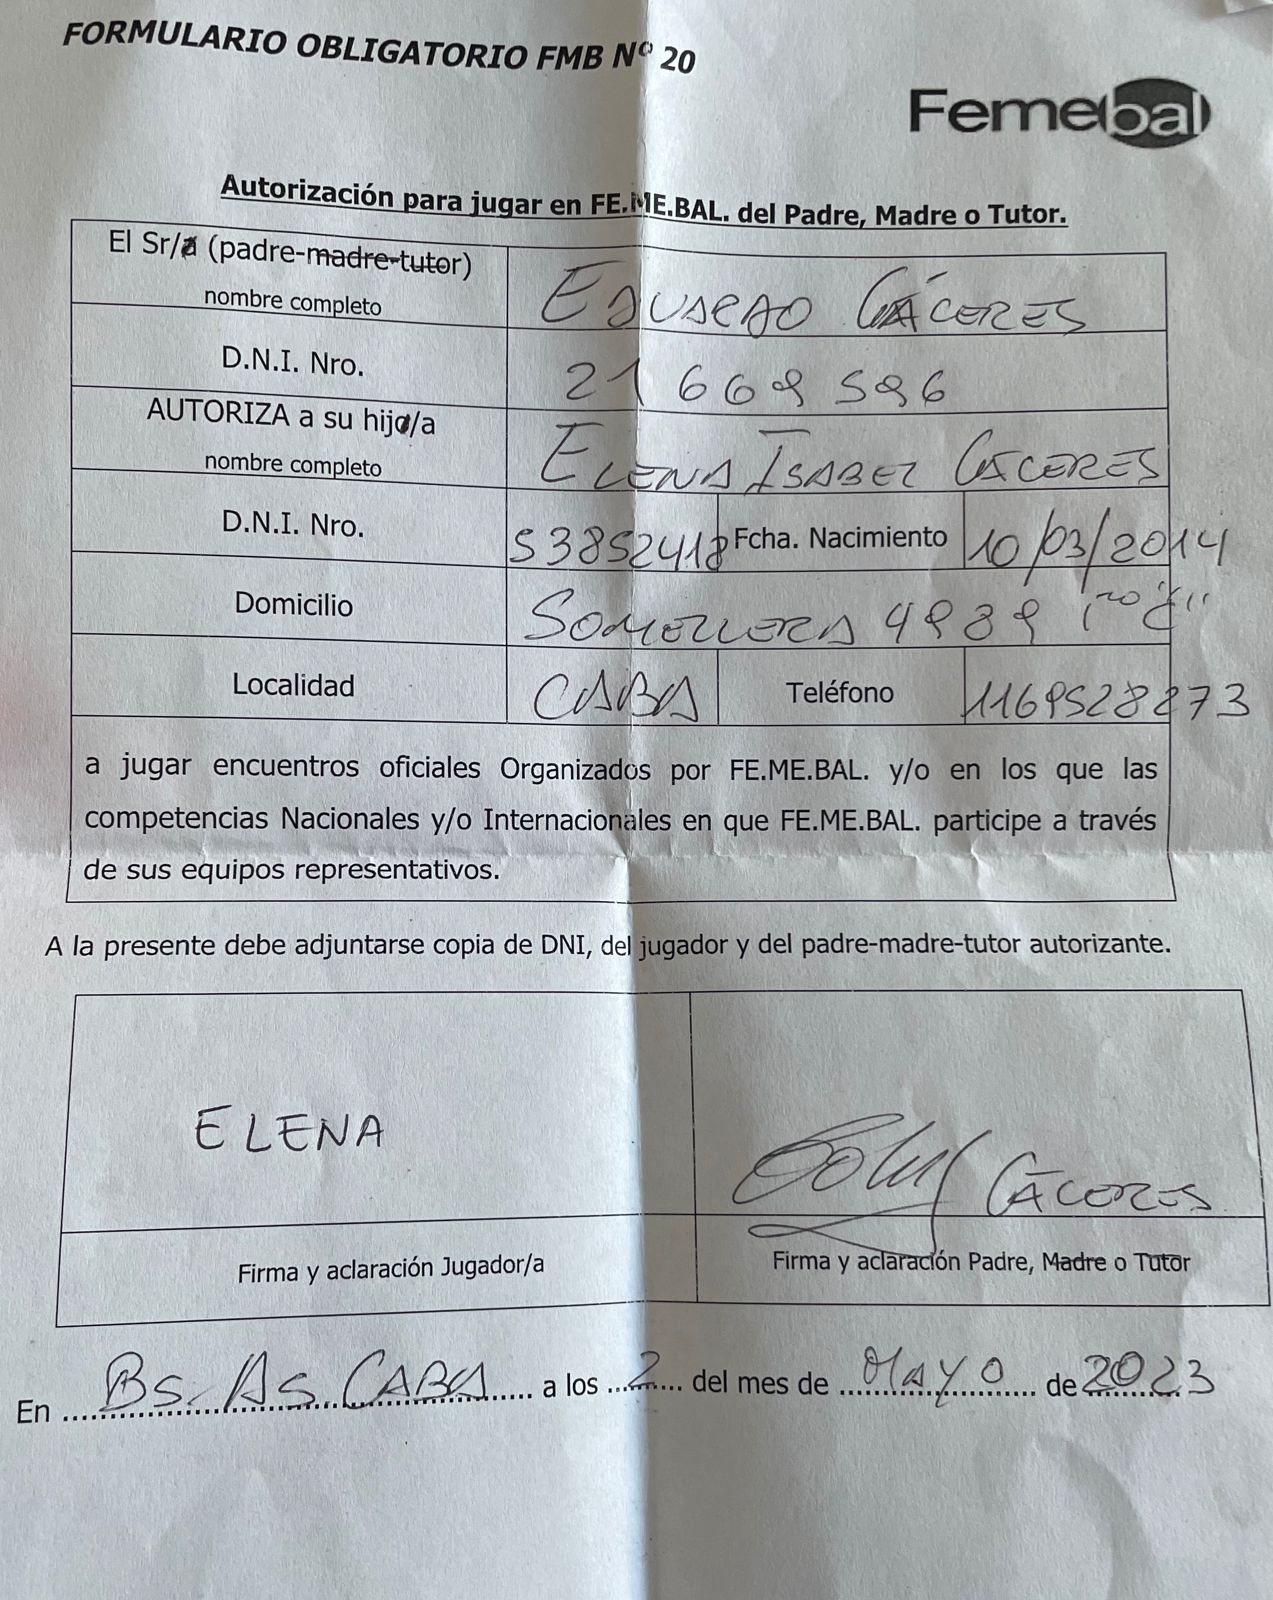 FORMULARIO OBLIGATORIO FMB Nº 20
Femebal
Autorización para jugar en FE.ME.BAL. del Padre, Madre o Tutor.
El Sr/a (padre-madre-tutor) nombre completo EDUARDO CÁCERES
D.N.I. Nro. 21 669 596
AUTORIZA a su hijo/a nombre completo ELENA ISABEL CÁCERES
D.N.I. Nro. 53852418 Fcha. Nacimiento 10/03/2014
Domicilio SOMELLERA 4989 1ro "E"
Localidad CABA Teléfono 1169528273
a jugar encuentros oficiales Organizados por FE.ME.BAL. y/o en los que las
competencias Nacionales y/o Internacionales en que FE.ME.BAL. participe a través
de sus equipos representativos.
A la presente debe adjuntarse copia de DNI, del jugador y del padre-madre-tutor autorizante.
ELENA
CÁCERES
Firma y aclaración Jugador/a
Firma y aclaración Padre, Madre o Tutor
En Bs. As. CABA a los 2 del mes de MAYO de 2023